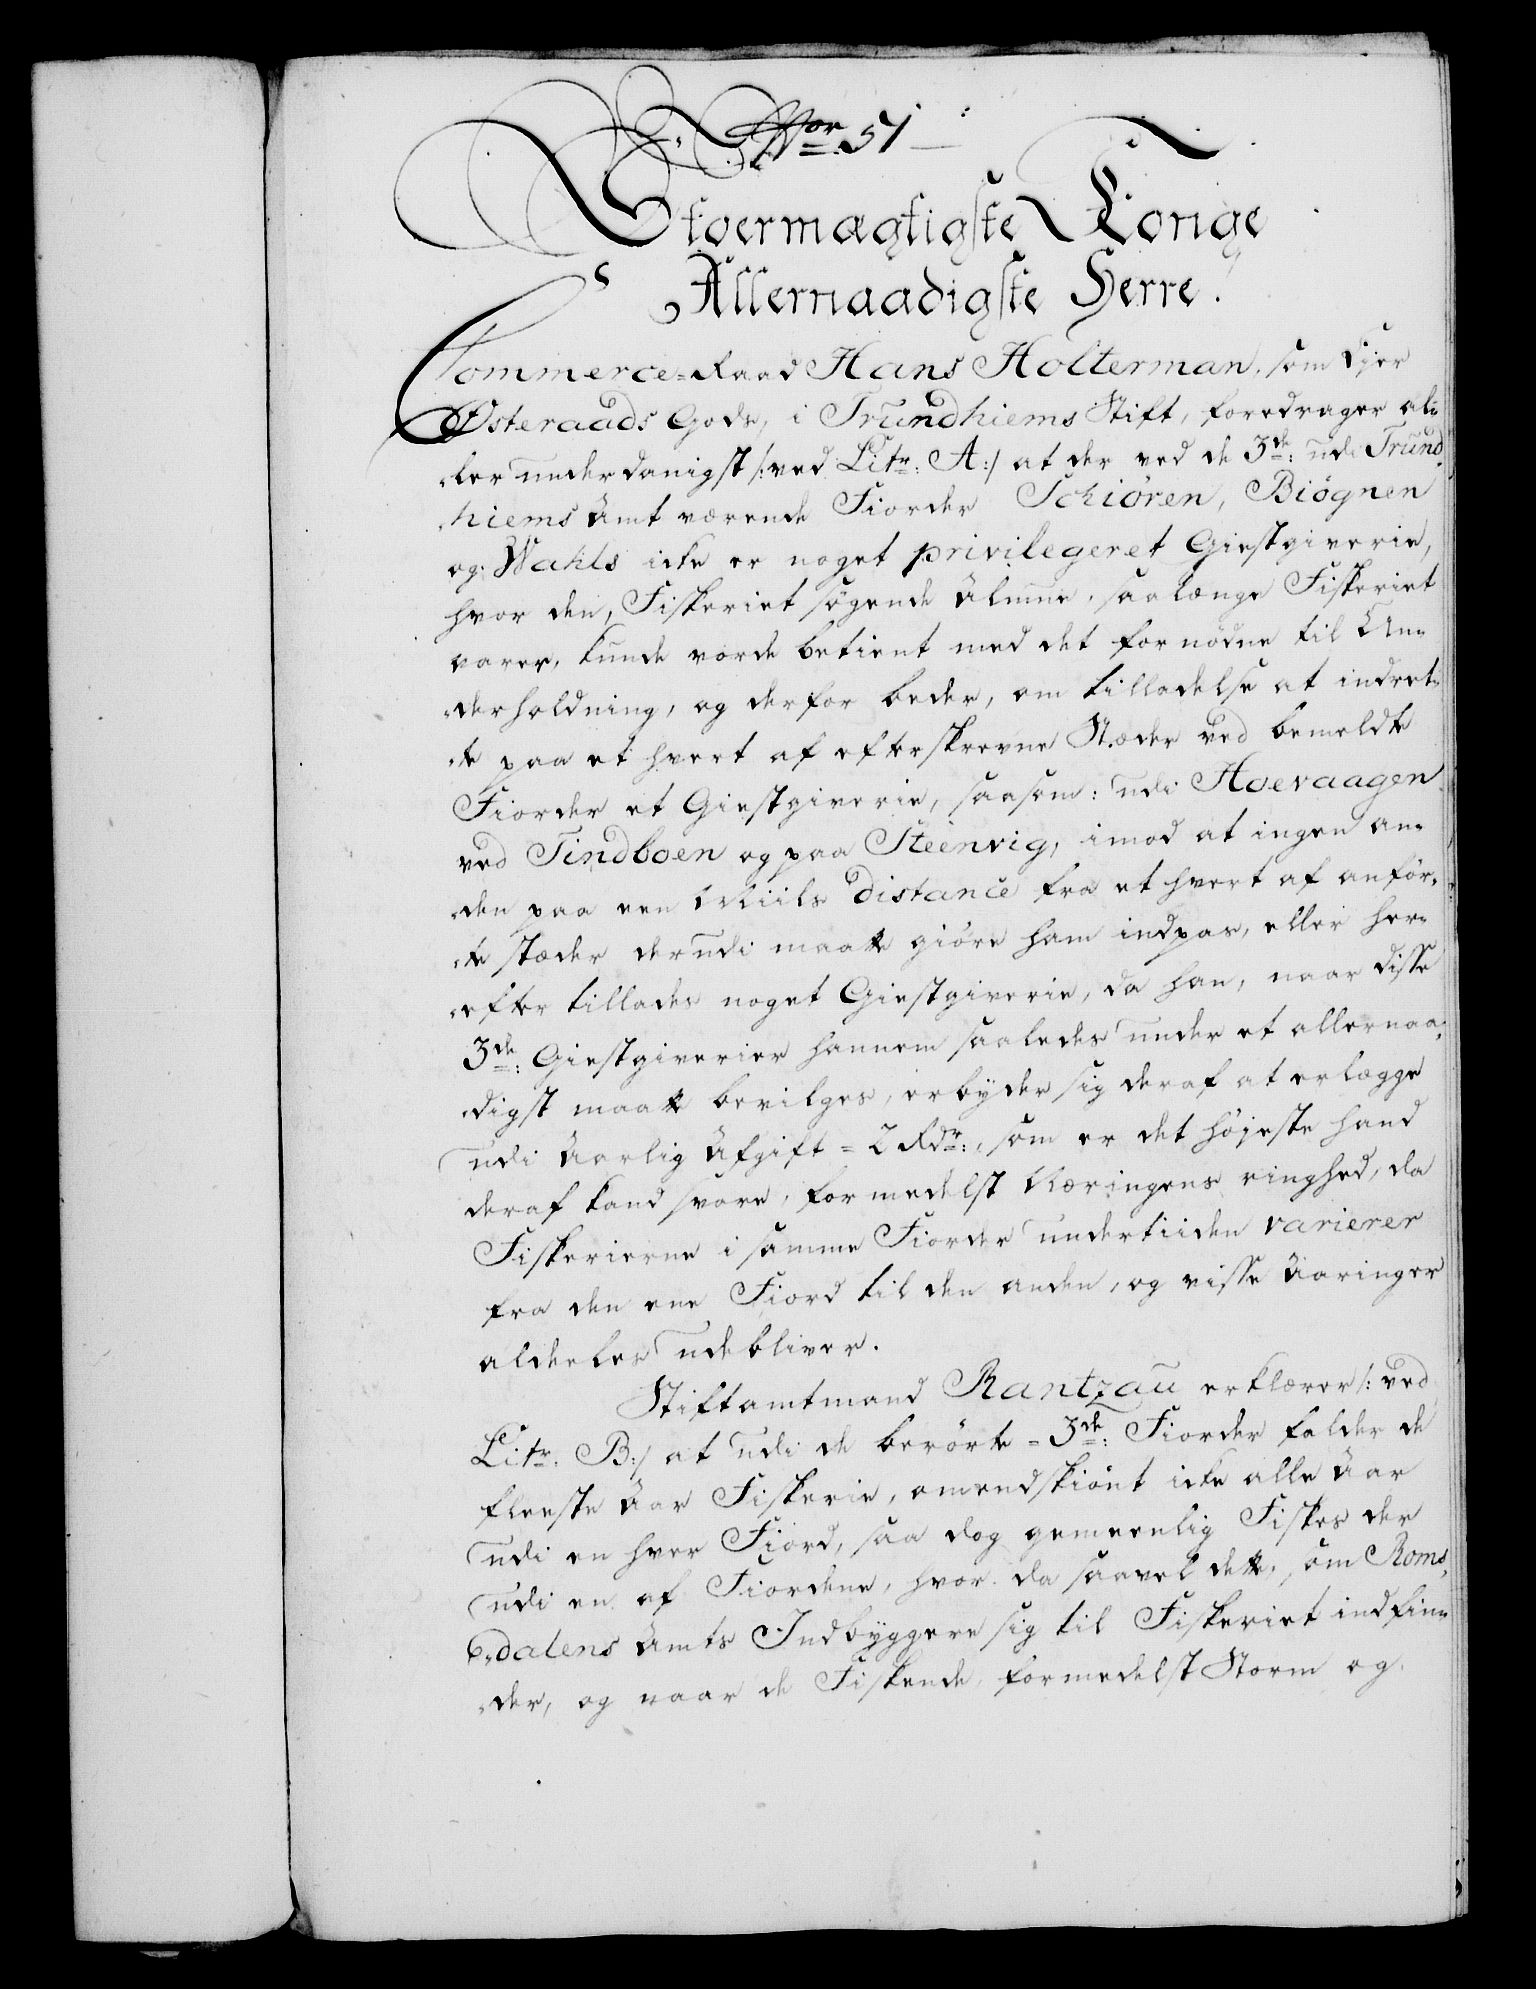 Nor 51
Stoermægtigste Konge
Allernaadigste Herre!
Commerce-Raad Hans Holterman, som Ejer
Østeraads Gods, i Trundhiems Stift, foredrager al-
ler underdanigst /:ved Litr: A:/ at der ved de 3de: udi Trund-
hiems Amt værende Fiorder Schiøren, Biøgnen
og Wahls icke er noget privilegeret Giestgiverie,
hvor den, Fiskeriet søgende Almue, saalænge Fiskeriet
varer, kunde vorde betient med det fornødne til Un-
derholdning, og derfor beder, om tilladelse at indret-
te paa et hvert af efterskrevne Stæder ved bemeldte
Fiorder et Giestgiverie, saasom: udi Hoevaagen
ved Tindboen og paa Steenvig, imod at ingen an-
den paa een Miils distance fra et hvert af anför-
te stæder derudi maatte giöre ham indpas, eller her-
efter tillades noget Giestgiverie, da han, naar disse
3de: Giestgiverier hannem saaledes under et allernaa-
digst maatte bevilges, erbyder sig deraf at erlægge
udi Aarlig Afgift = 2 Rdr:, som er det höjeste hand
deraf kand svare, formedelst Næringens ringhed, da
Fiskerierne i samme Fiorder undertiiden varierer
fra den ene Fiord til den anden, og visse Aaringer
aldeeles udebliver.
Stiftamtmand Rantzau erklærer /: ved
Litr: B:/ at udi de berörte = 3de: Fiorder falder de
fleeste Aar Fiskerie, omendskiönt icke alle Aar
udi en hver Fiord, saa dog gemeenlig Fiskes der
udi en af Fiordene, hvor da saavel dette, som Roms-
dalens Amts Indbyggere sig til Fiskeriet indfin-
der, og naar de Fiskende formedelst Storm og